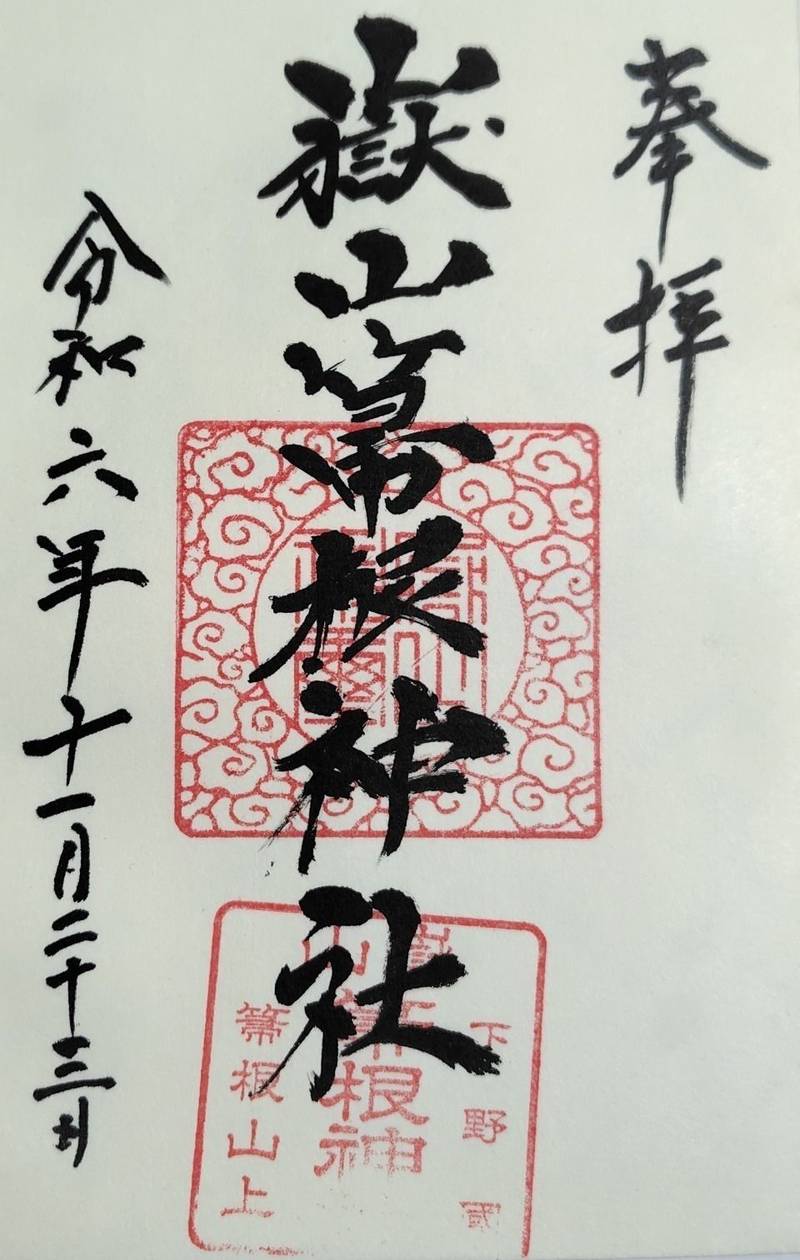 奉拝
嶽山箒根神社
令和六年十一月二十三日
下野國
嶽山箒根神
箒根山上